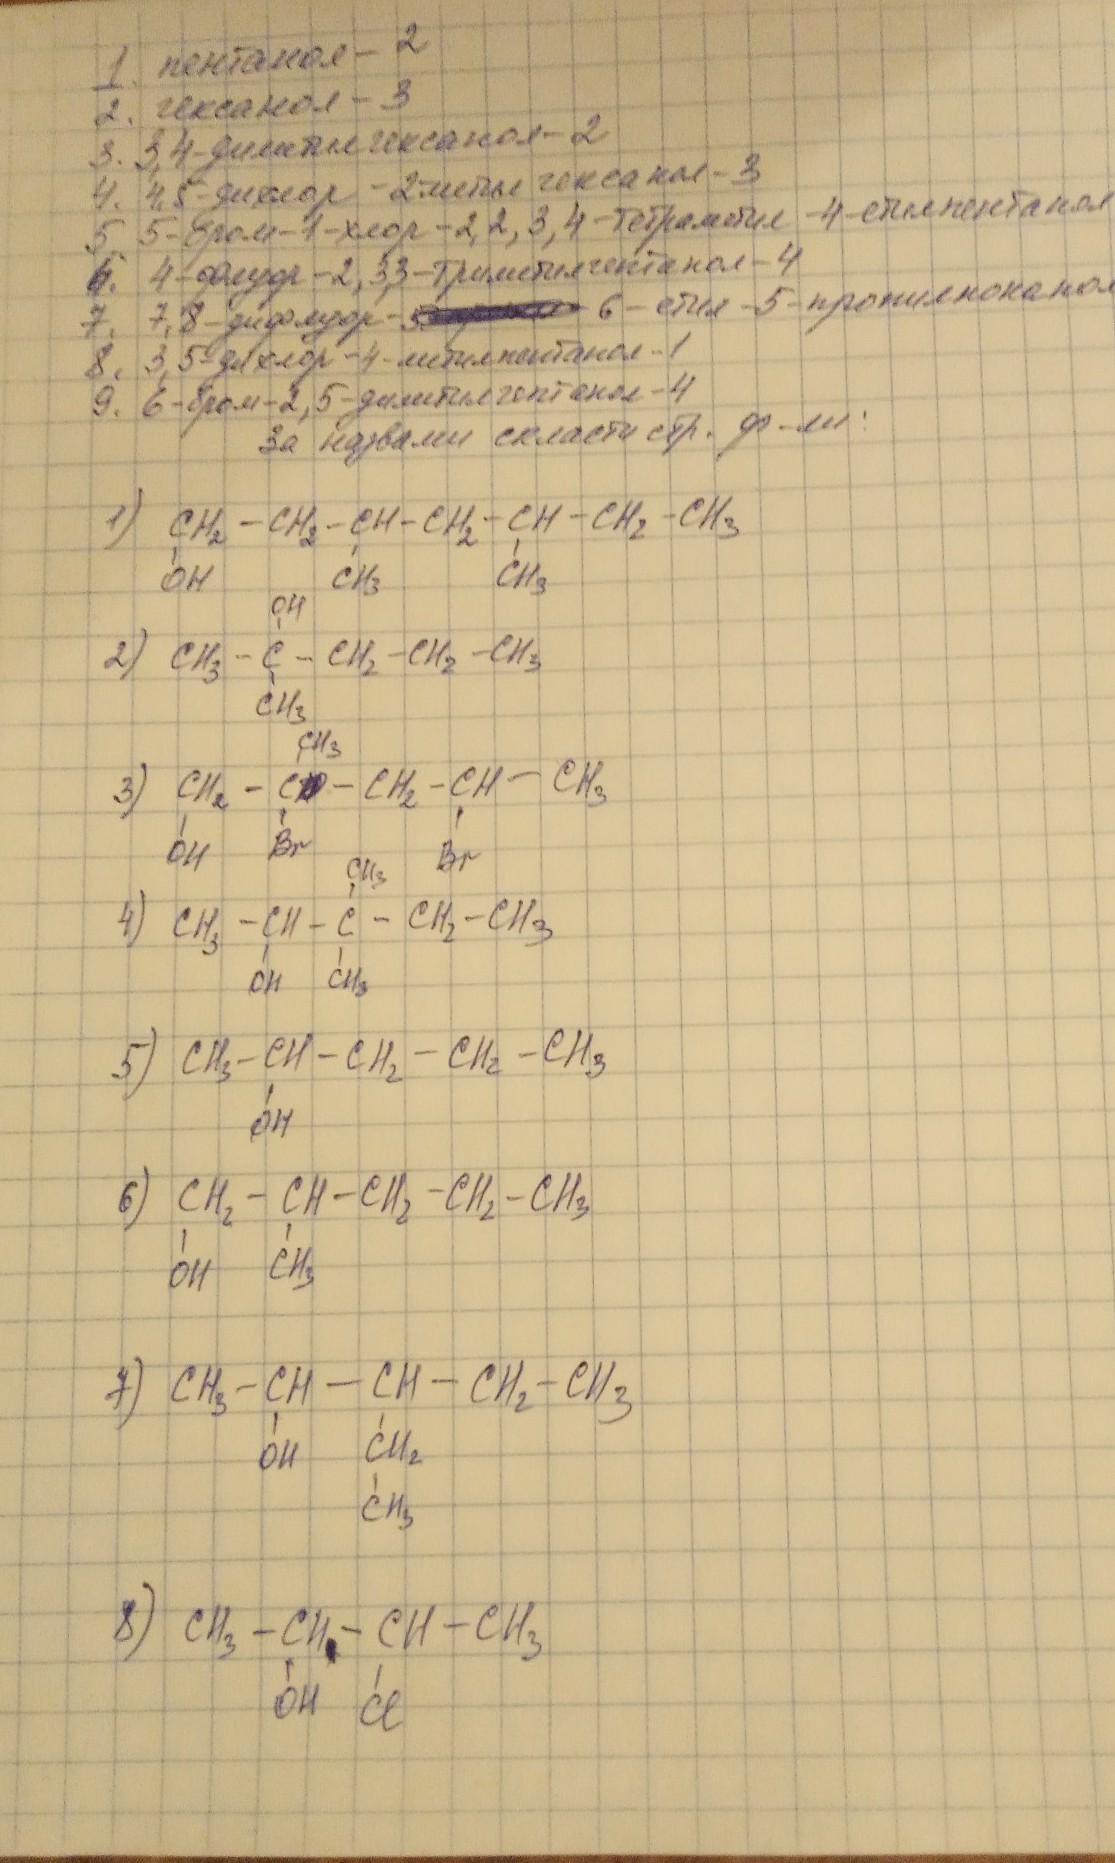 1. пентанол - 2
2. гексанол - 3
3. 3,4-диметилгексанол-2
4. 4,5-дихлор-2-метил гексанол-3
5. 5-бром-1-хлор-2,2,3,4-тетраметил-4-етилпентанол
6. 4-флуор-2,3,3-триметилгептанол-4
7. 7,8-дифлуор- 6-етил-5-пропілнонанол
8. 3,5-дихлор-4-метилпентанол-1
9. 6-бром-2,5-диметилгептанол-4
За назвами скласти стр. ф-ли:
1) CH2 - CH2 - CH - CH2 - CH - CH2 - CH3
OH CH3 CH3
OH
2) CH3 - C - CH2 - CH2 - CH3
CH3
CH3
3) CH2 - C - CH2 - CH - CH3
OH Br Br
CH3
4) CH3 - CH - C - CH2 - CH3
OH CH3
5) CH3 - CH - CH2 - CH2 - CH3
OH
6) CH2 - CH - CH2 - CH2 - CH3
OH CH3
7) CH3 - CH - CH - CH2 - CH3
OH CH2
CH3
8) CH3 - CH - CH - CH3
OH Cl